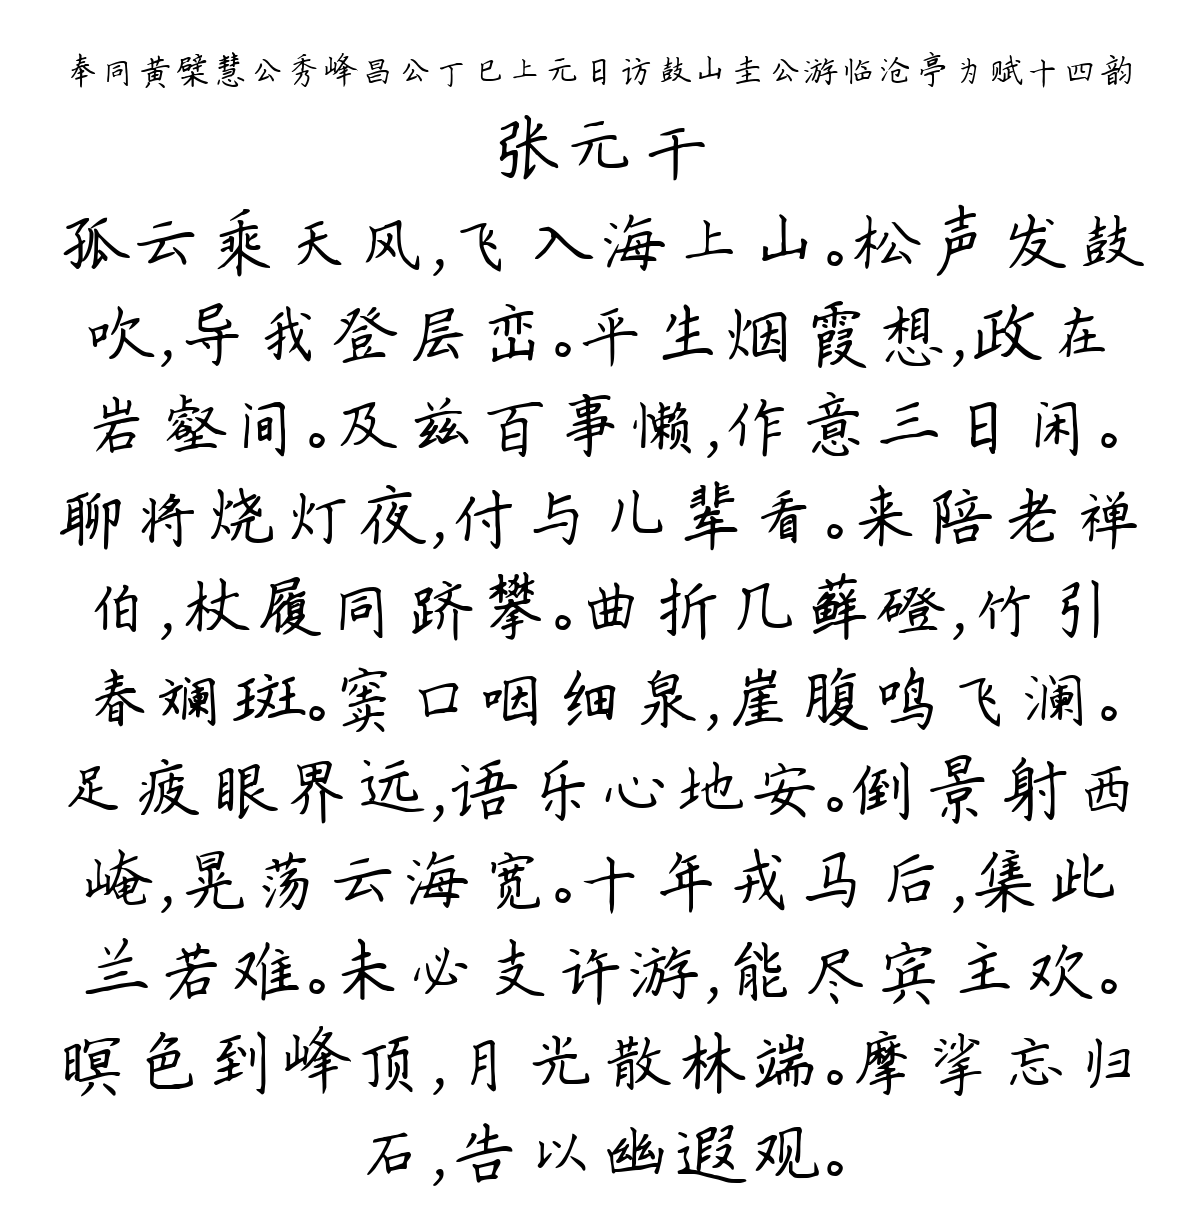 奉同黄檗慧公秀峰昌公丁巳上元日访鼓山圭公游临沧亭为赋十四韵
张元干
孤云乘天风,飞入海上山。松声发鼓
吹,导我登层峦。平生烟霞想,政在
岩壑间。及兹百事懒,作意三日闲。
聊将烧灯夜,付与儿辈看。来陪老禅
伯,杖履同跻攀。曲折几藓磴,竹引
春斓斑。窦口咽细泉,崖腹鸣飞澜。
足疲眼界远,语乐心地安。倒景射西
崦,晃荡云海宽。十年戎马后,集此
兰若难。未必支许游,能尽宾主欢。
暝色到峰顶,月光散林端。摩挲忘归
石,告以幽遐观。